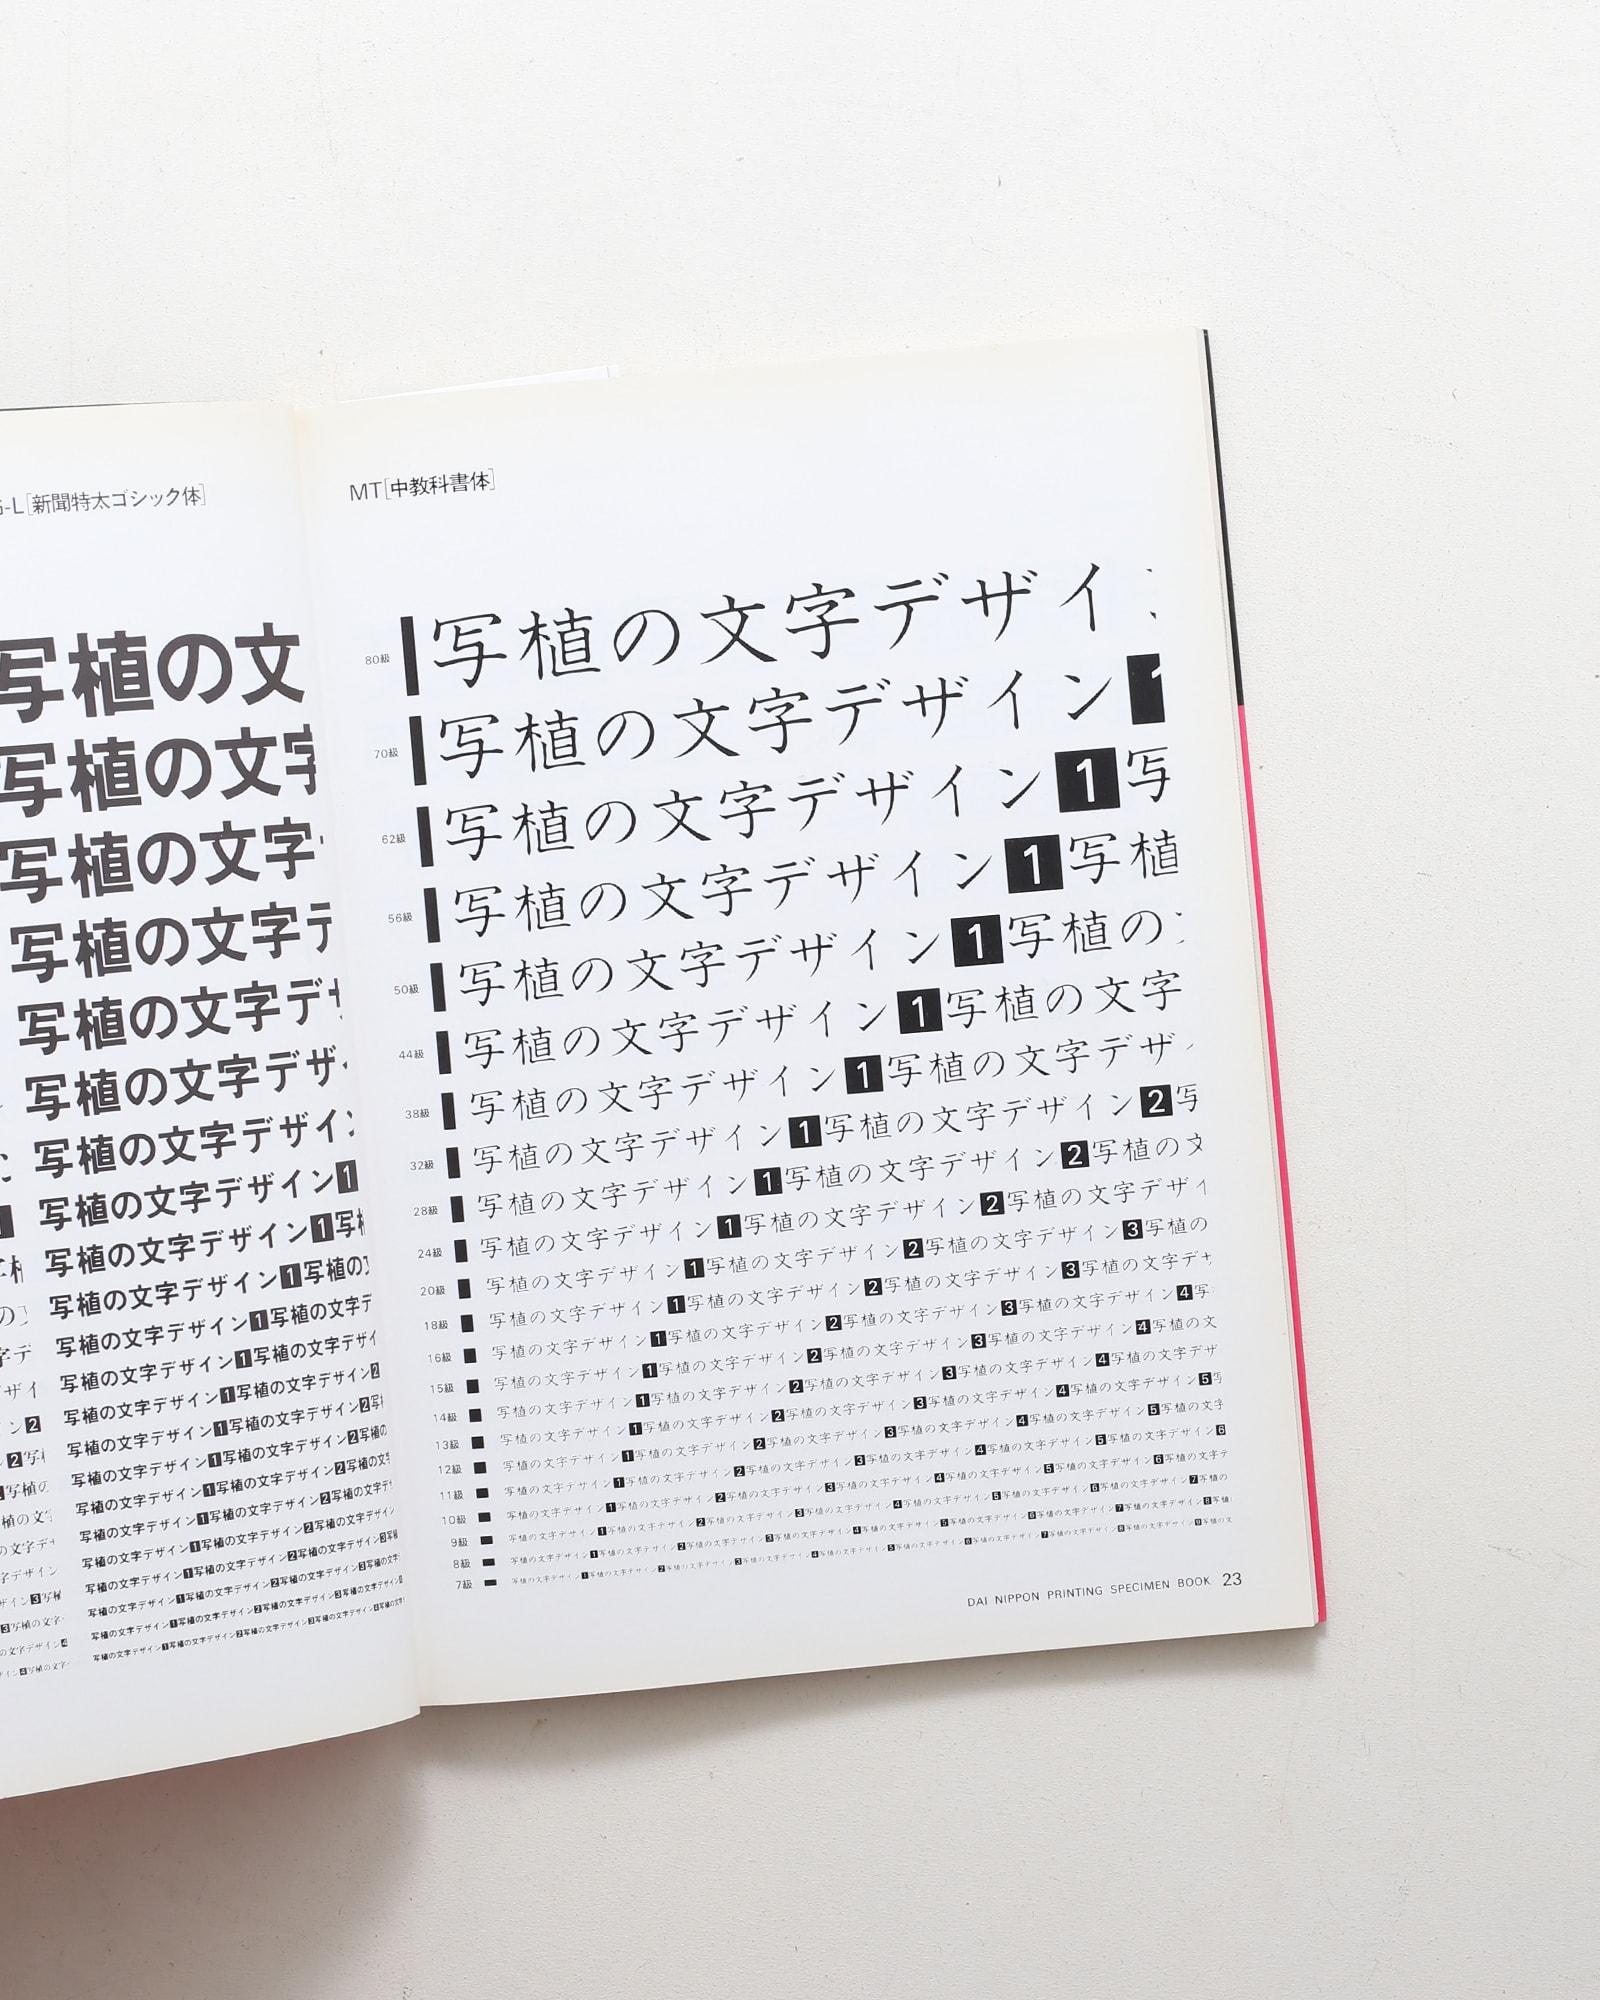 -L[新聞特太ゴシック体]
写植の文
写植の文字
写植の文字
写植の文字デ
写植の文字デ
写植の文字デザ
写植の文字デザイ
写植の文字デザイン1
写植の文字デザイン1写
写植の文字デザイン1写植の
写植の文字デザイン1写植の文字
写植の文字デザイン1写植の文字デ
写植の文字デザイン1写植の文字デザイン2
写植の文字デザイン1写植の文字デザイン2写
写植の文字デザイン1写植の文字デザイン2写植の
MT[中教科書体]
80級 写植の文字デザイ
70級 写植の文字デザイン1
62級 写植の文字デザイン1写
56級 写植の文字デザイン1写植
50級 写植の文字デザイン1写植の
44級 写植の文字デザイン1写植の文字
38級 写植の文字デザイン1写植の文字デザ
32級 写植の文字デザイン1写植の文字デザイン2写
28級 写植の文字デザイン1写植の文字デザイン2写植の文
24級 写植の文字デザイン1写植の文字デザイン2写植の文字デザイ
20級 写植の文字デザイン1写植の文字デザイン2写植の文字デザイン3写植の
18級 写植の文字デザイン1写植の文字デザイン2写植の文字デザイン3写植の文字デ
16級 写植の文字デザイン1写植の文字デザイン2写植の文字デザイン3写植の文字デザイン4写
15級 写植の文字デザイン1写植の文字デザイン2写植の文字デザイン3写植の文字デザイン4写植の文
14級 写植の文字デザイン1写植の文字デザイン2写植の文字デザイン3写植の文字デザイン4写植の文字デザ
13級 写植の文字デザイン1写植の文字デザイン2写植の文字デザイン3写植の文字デザイン4写植の文字デザイン5写
12級 写植の文字デザイン1写植の文字デザイン2写植の文字デザイン3写植の文字デザイン4写植の文字デザイン5写植の文字
11級 写植の文字デザイン1写植の文字デザイン2写植の文字デザイン3写植の文字デザイン4写植の文字デザイン5写植の文字デザイン6
10級 写植の文字デザイン1写植の文字デザイン2写植の文字デザイン3写植の文字デザイン4写植の文字デザイン5写植の文字デザイン6写植の文字デ
9級 写植の文字デザイン1写植の文字デザイン2写植の文字デザイン3写植の文字デザイン4写植の文字デザイン5写植の文字デザイン6写植の文字デザイン7写植の
8級 写植の文字デザイン1写植の文字デザイン2写植の文字デザイン3写植の文字デザイン4写植の文字デザイン5写植の文字デザイン6写植の文字デザイン7写植の文字デザイン8写植
7級 写植の文字デザイン1写植の文字デザイン2写植の文字デザイン3写植の文字デザイン4写植の文字デザイン5写植の文字デザイン6写植の文字デザイン7写植の文字デザイン8写植の文字デザイン9写植の文
DAI NIPPON PRINTING SPECIMEN BOOK 23